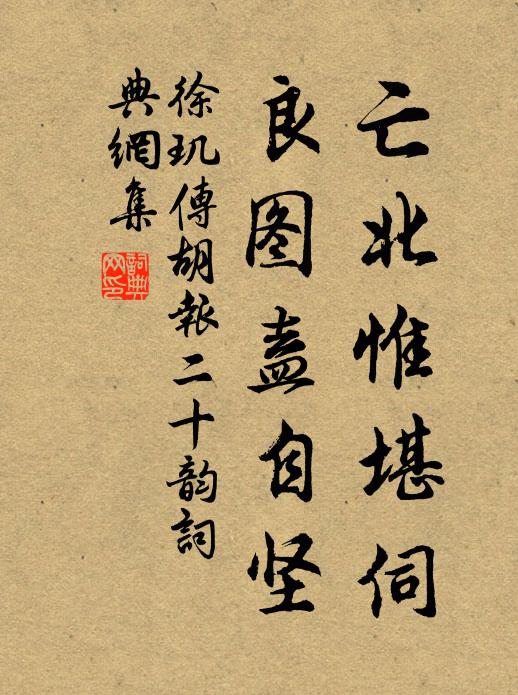 亡北惟堪伺
良图盍自坚
徐玑傳胡報二十韵詞
典網集
詞典網印